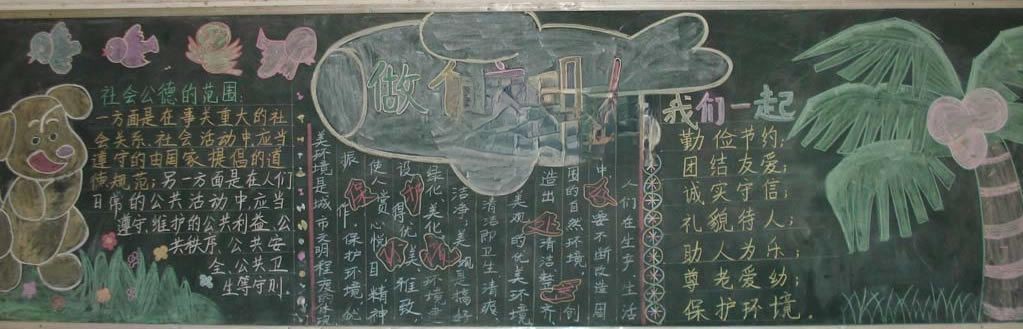 社会公德的范围:
一方面是在事关重大的社
会关系、社会活动中应当
遵守的由国家提倡的道
德规范;另一方面是在人们
日常的公共活动中应当
遵守、维护的公共利益、公
共秩序、公共安
全、公共卫
生等守则
做
人们在生产生活
中,要不断改造周
围的自然环境,创
造出清洁整齐、
美观的优美环境
清洁即卫生清爽、
绿化美化
使人赏心悦目、精神
振作,保护环境的
我们一起
勤俭节约;
团结友爱;
诚实守信;
礼貌待人;
助人为乐;
尊老爱幼;
保护环境